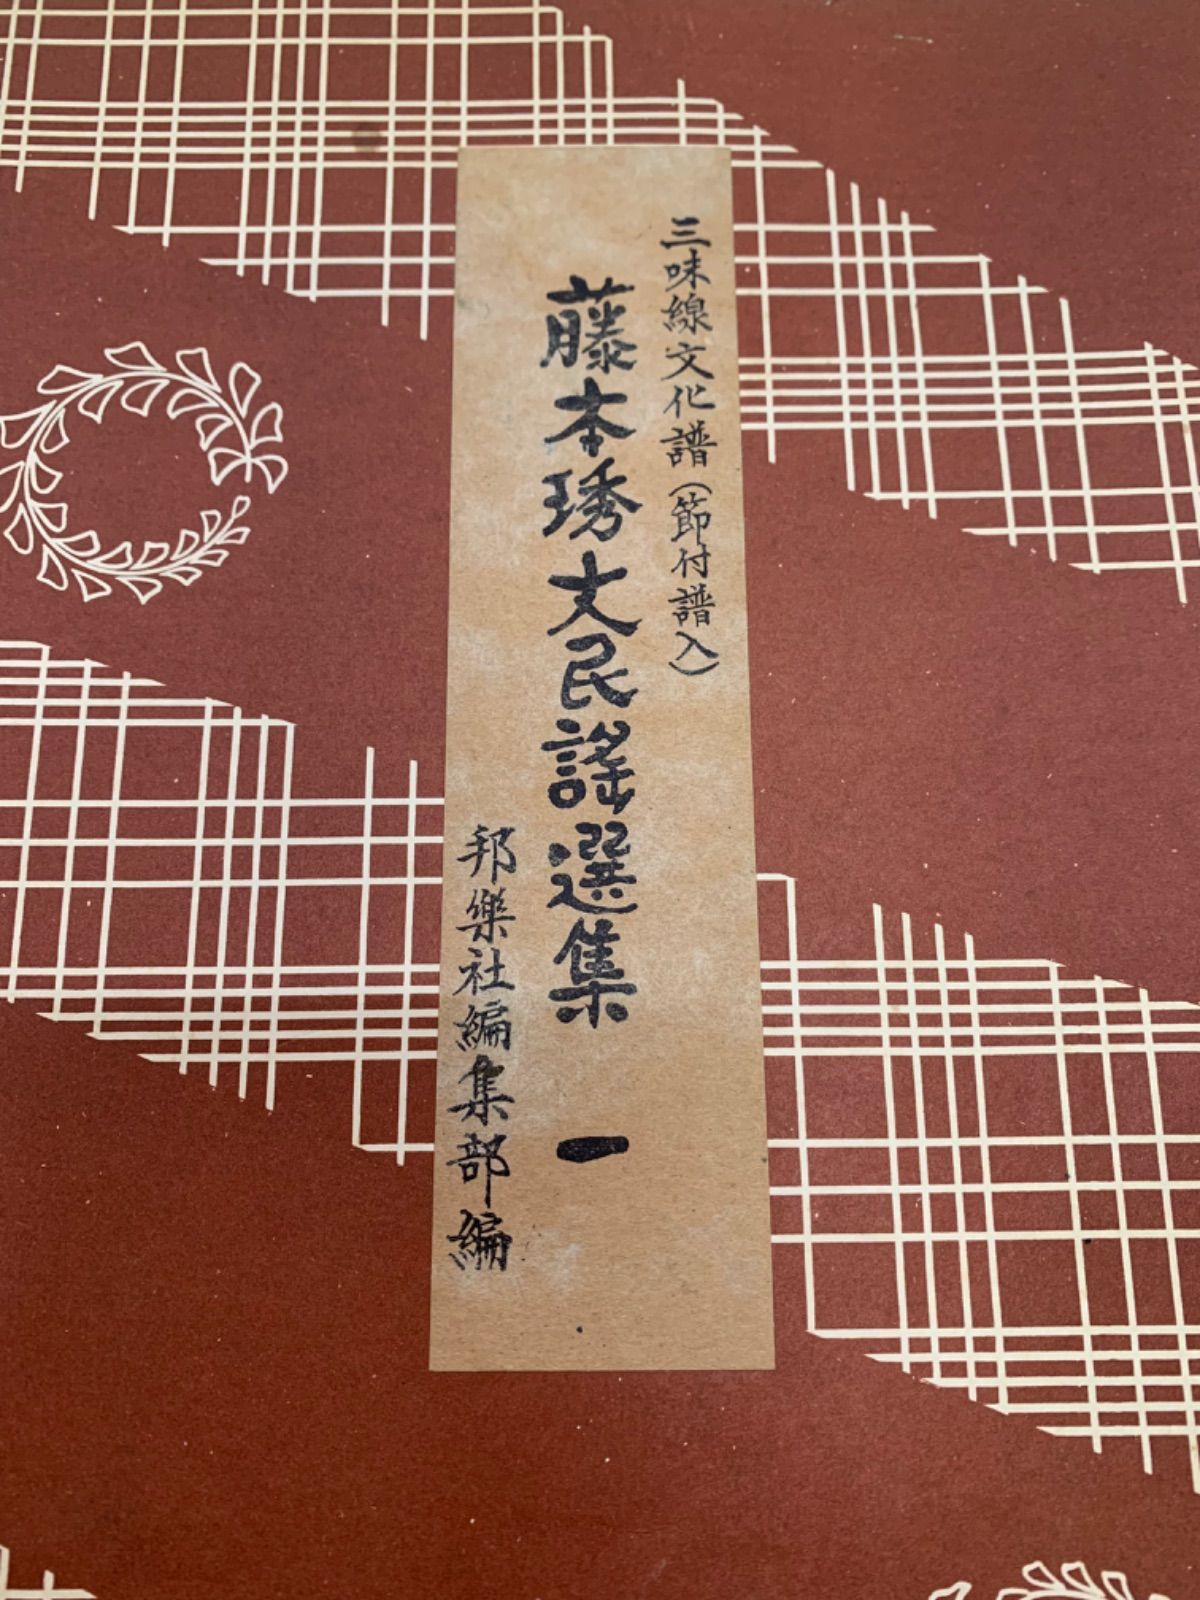 三味線文化譜（節付譜入）
藤本琇丈民謠選集 一
邦樂社編集部編